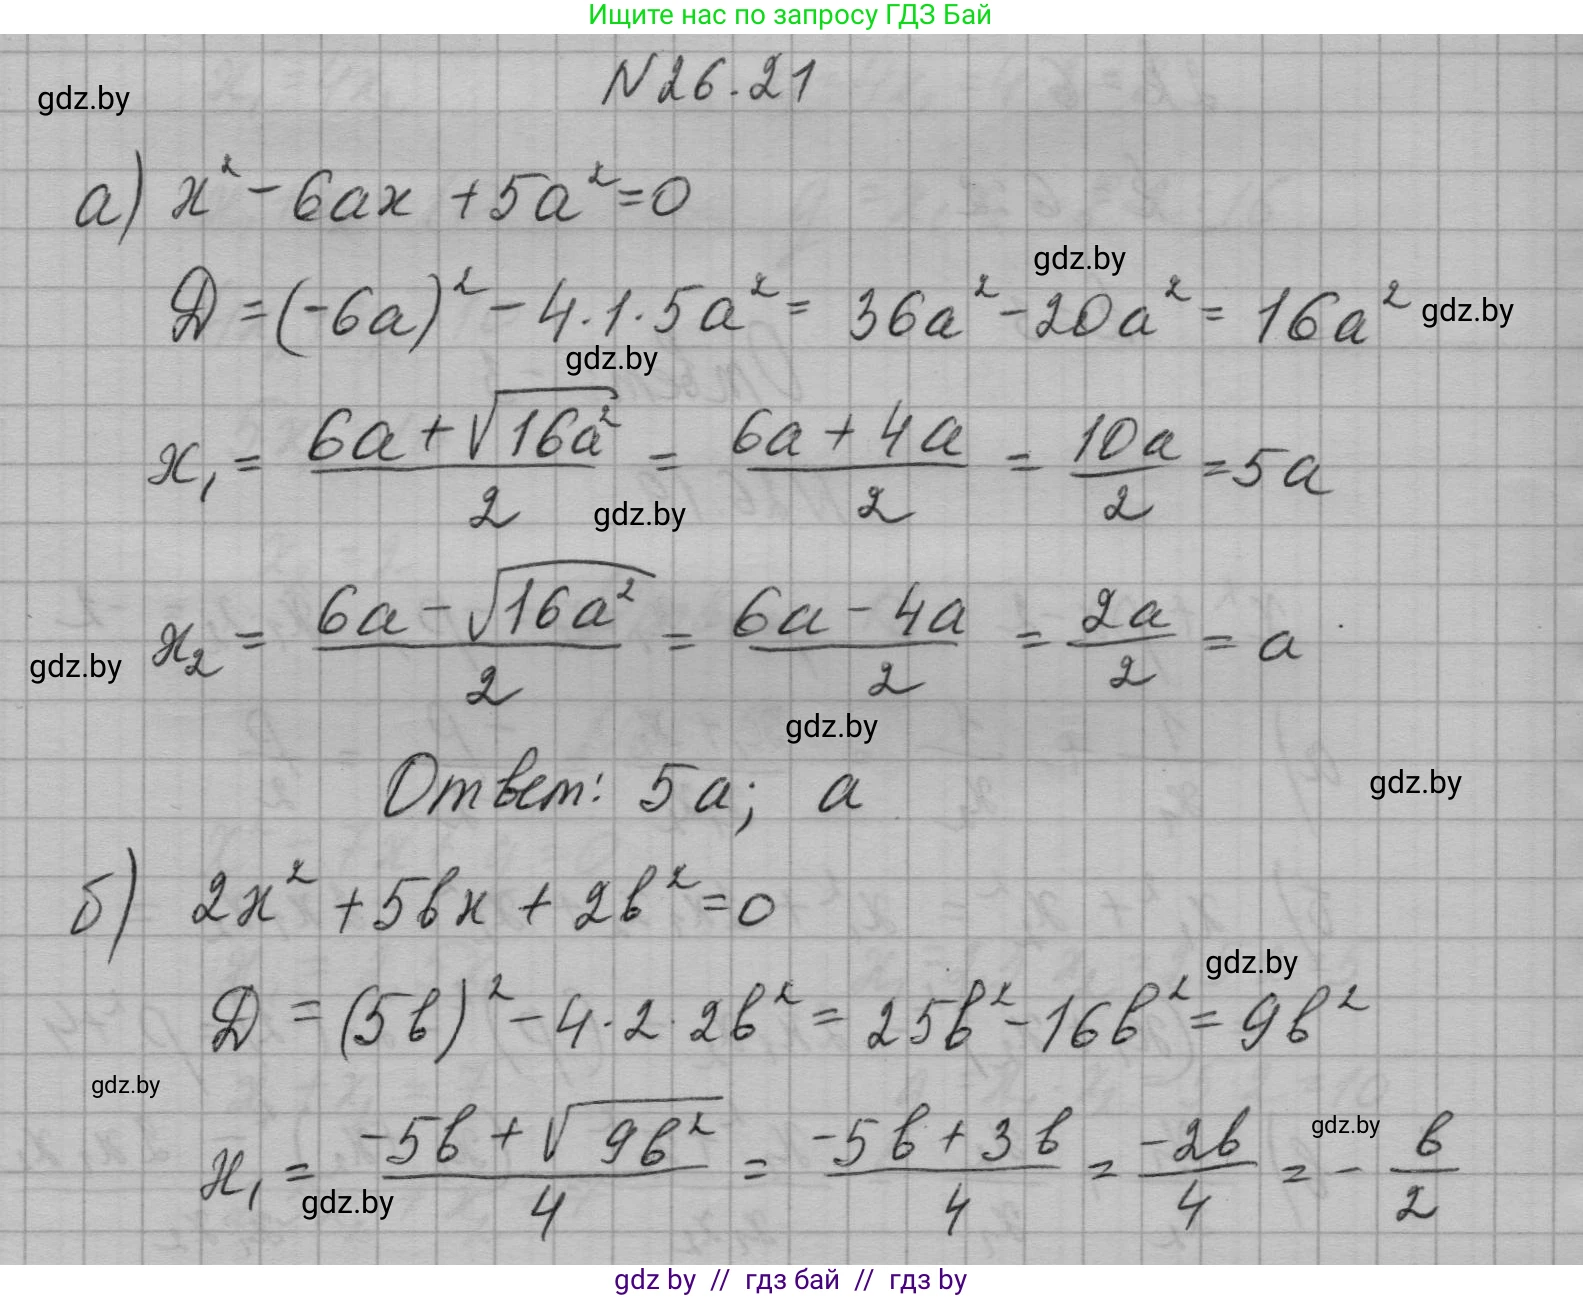 Ищите нас по запросу ГДЗ Бай
N 26.21
gdz.by
а) x² - 6ax + 5a² = 0
gdz.by
D = (-6a)² - 4·1·5a² = 36a² - 20a² = 16a²
gdz.by
gdz.by
x₁ = (6a + √16a²)/2 = (6a + 4a)/2 = 10a/2 = 5a
gdz.by
x₂ = (6a - √16a²)/2 = (6a - 4a)/2 = 2a/2 = a
gdz.by
gdz.by
Ответ: 5a; a
gdz.by
б) 2x² + 5bx + 2b² = 0
gdz.by
D = (5b)² - 4·2·2b² = 25b² - 16b² = 9b²
gdz.by
gdz.by
x₁ = (-5b + √9b²)/4 = (-5b + 3b)/4 = -2b/4 = -b/2
gdz.by
gdz by // гдз бай // гдз by